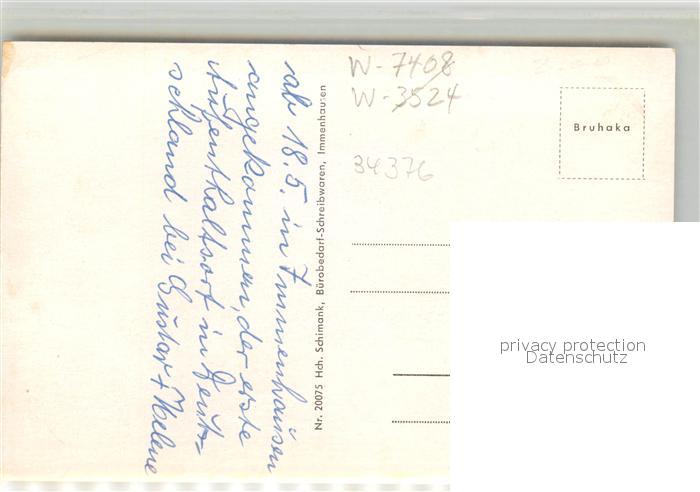 ab 18.5. in Immenhausen
angekommen, der erste
Aufenthaltsort in Deut-
schland bei Gustav + Helene
Nr. 20075 Hch. Schimank, Bürobedarf-Schreibwaren, Immenhausen
W-7408
W-3524
34376
Bruhaka
privacy protection
Datenschutz